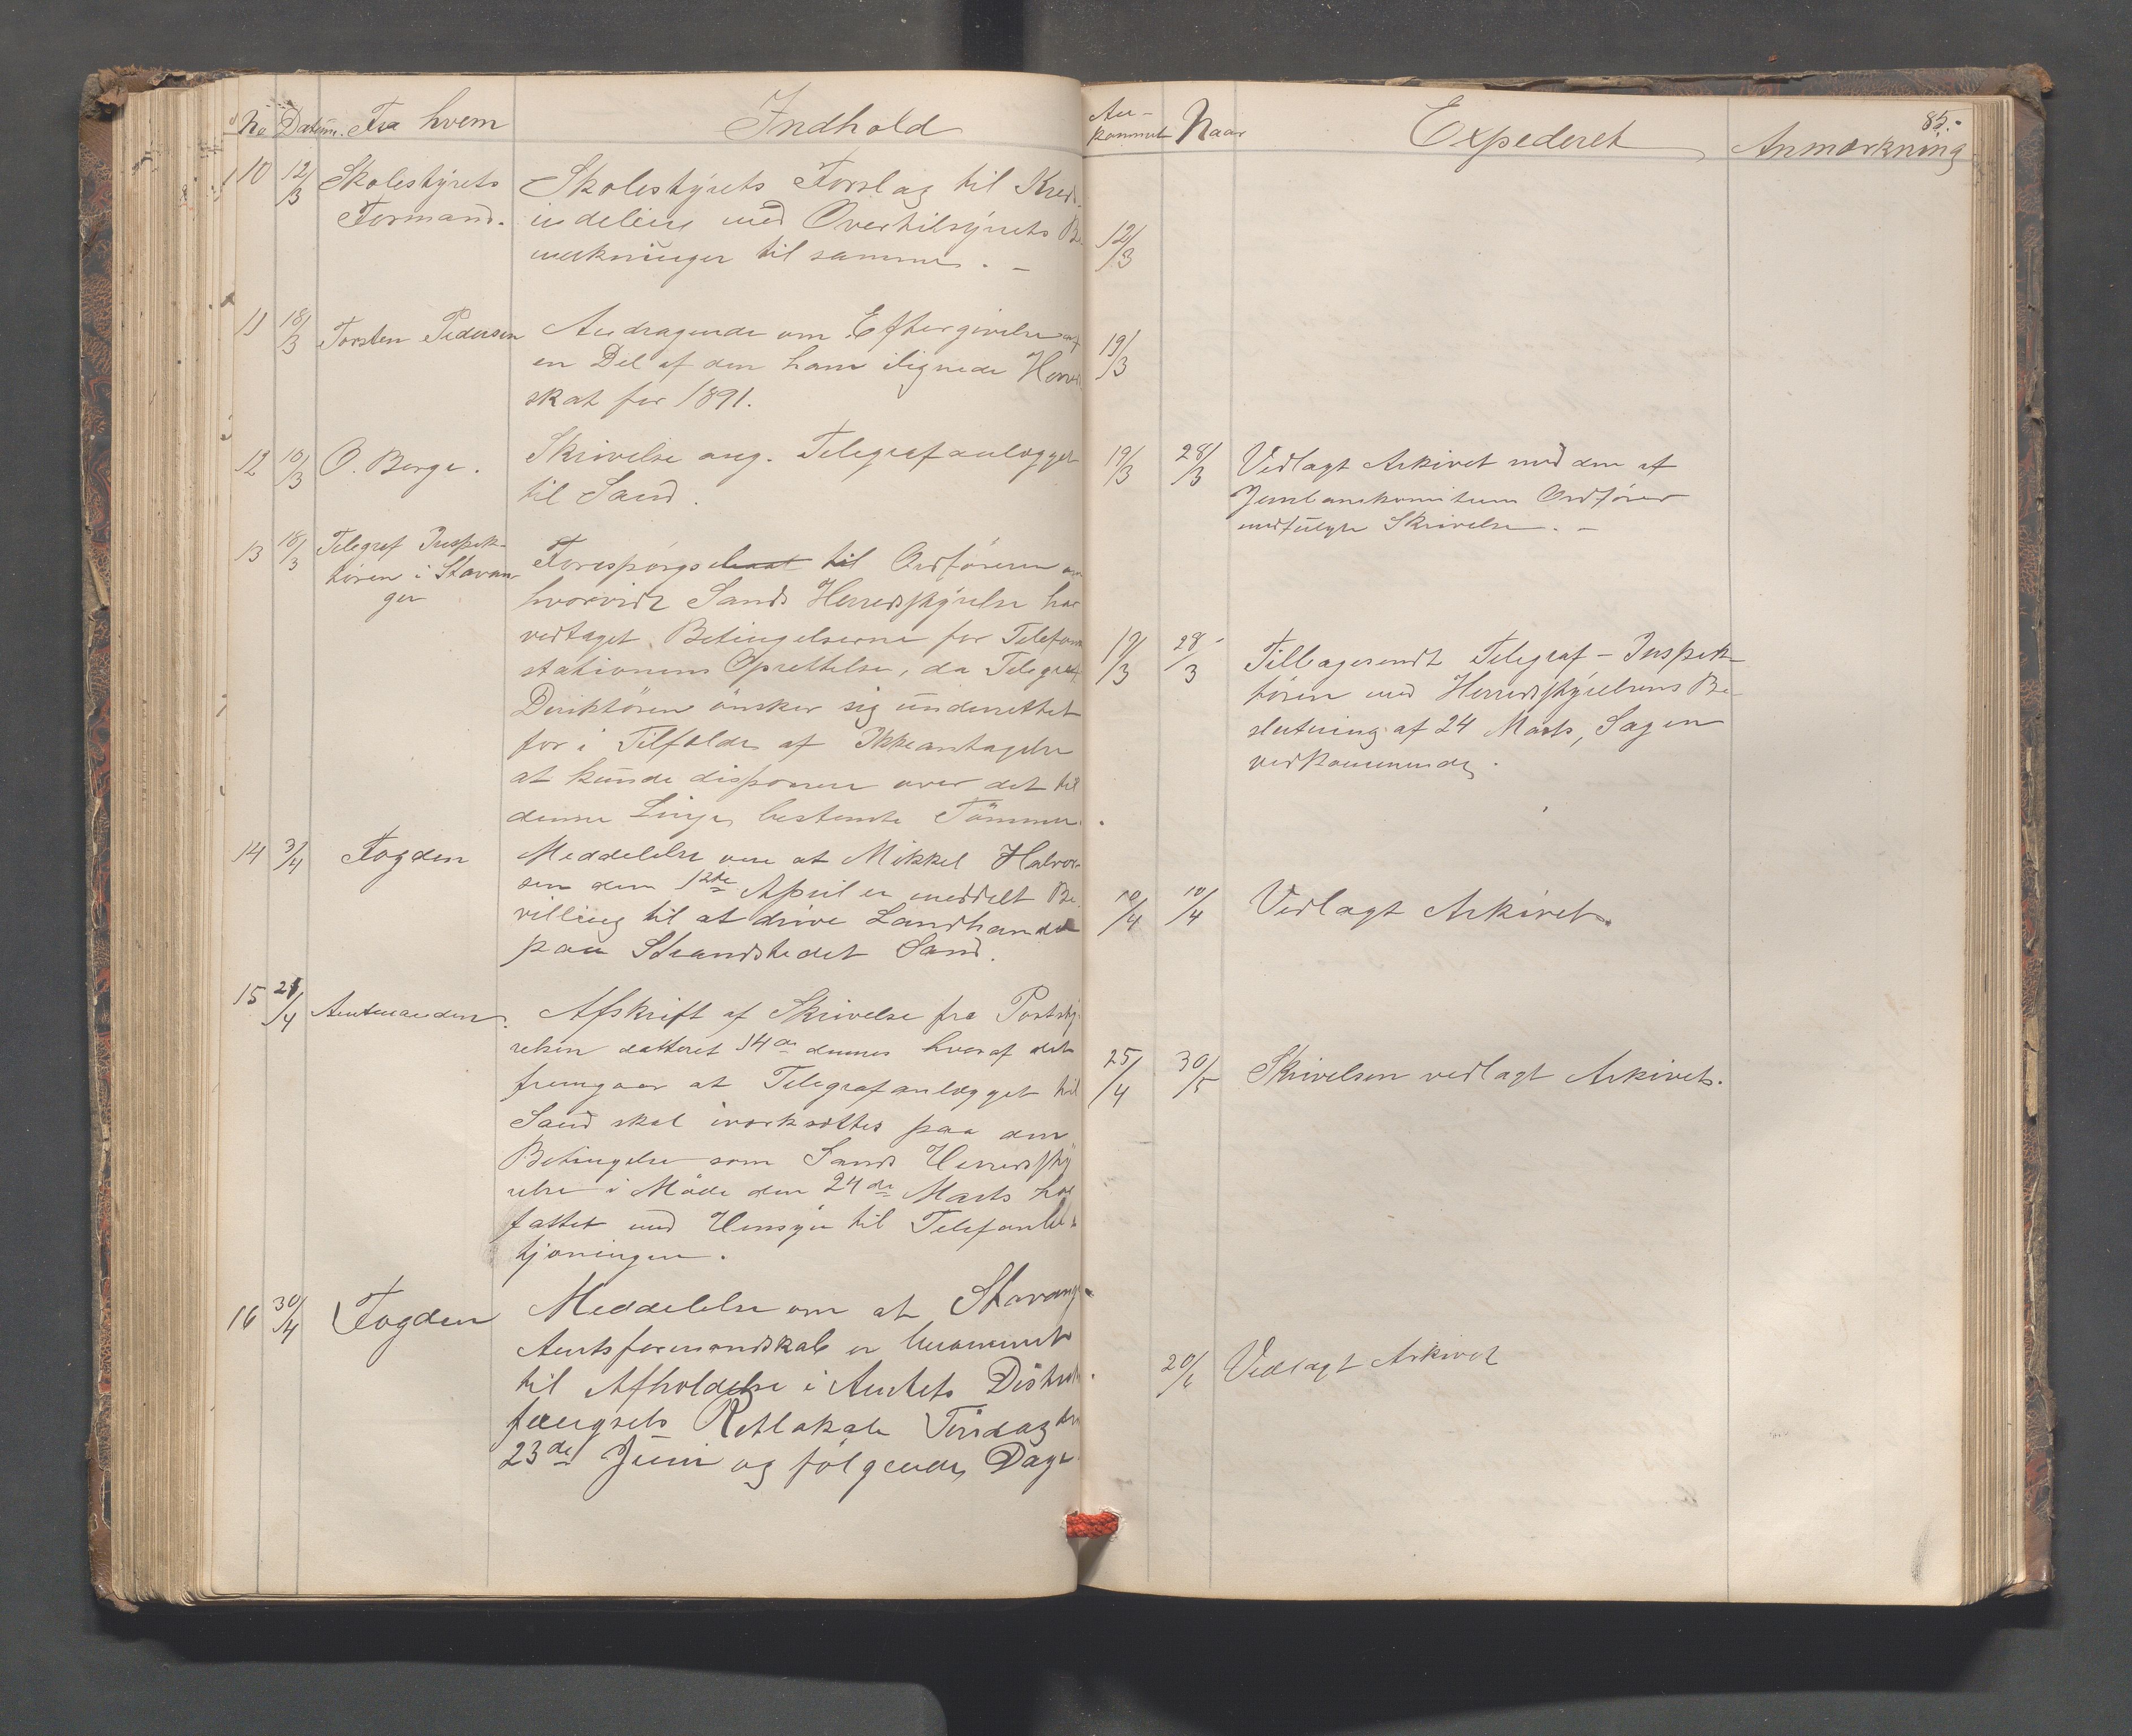 No Datum. Fra hvem Indhold
10 12/3 Skolestyrets Skolestyrets Forslag til Kreds-
Formand. inddeling med Overtilsynets Be-
merkninger til samme. –
11 18/3 Torsten Pedersen Andragende om Eftergivelse af
en Del af den ham ilignede Herreds
skat for 1891.
12 10/3 O. Berge. Skrivelse ang. Telegrafanlægget
til Sand.
13 18/3 Telegraf Inspek-
tøren i Stavan-
ger
Forespørgsel til Ordføreren om
hvorvidt Sands Herredsstyrelse har
vedtaget Betingelserne for Telefon
stationens Oprettelse, da Telegraf
Direktøren ønsker sig underrettet
for i Tilfælde af Ikkeantagelse
at kunde disponere over det til
denne Linje bestemte Tømmer.
14 3/4 Fogden Meddelelse om at Mikkel Halvor-
sen den 12te April er meddelt Be-
villing til at drive Landhandel
paa Strandstedet Sand.
15 21/4 Amtmanden. Afskrift af Skrivelse fra Poststy-
relsen datteret 14de dennes hvoraf det
fremgaar at Telegrafanlægget til
Sand skal iværksættes paa den
Betingelse som Sands Herredssty
relse i Møde den 24de Marts har
fattet med Hensyn til Telefonbe-
tjeningen.
16 30/4 Fogden Meddelelse om at Stavanger
Amtsformandskab er berammet
til Afholdelse i Amtets Distrikts
fængsels Retlokale Tirsdag den
23de Juni og følgende Dage
An-
kommet Naar Expederet Anmærkning
85.-
12/3
19/3
19/3 28/3 Vedlagt Arkivet med den af
Jernbanekomiteens Ordfører
medfulgte Skrivelse. –
19/3 28/3 Tilbagesendt Telegraf-Inspek-
tøren med Herredsstyrelsens Be-
slutning af 24 Marts, Sagen
vedkommende.
10/4 10/4 Vedlagt Arkivet.
25/4 30/5 Skrivelsen vedlagt Arkivet.
20/6 Vedlagt Arkivet